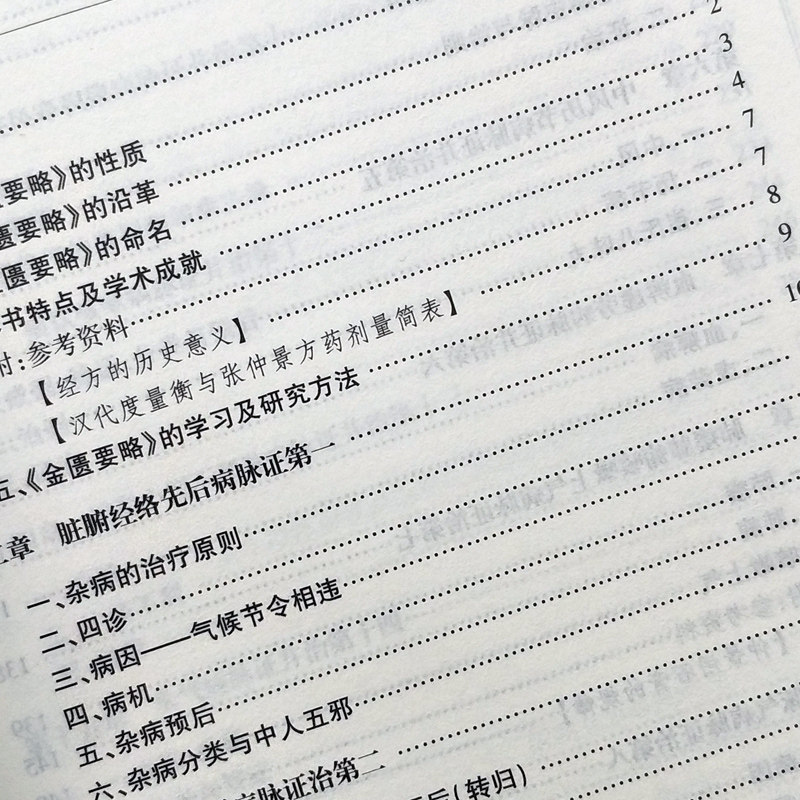 2
要略》的性质 3
匮要略》的沿革 4
匮要略》的命名 7
书特点及学术成就 7
附:参考资料
【经方的历史意义】 8
【汉代度量衡与张仲景方药剂量简表】 9
五、《金匮要略》的学习及研究方法
章 脏腑经络先后病脉证第一
一、杂病的治疗原则
二、四诊
三、病因——气候节令相违
四、病机
五、杂病预后
六、杂病分类与中人五邪
病脉证治第二
(转归)